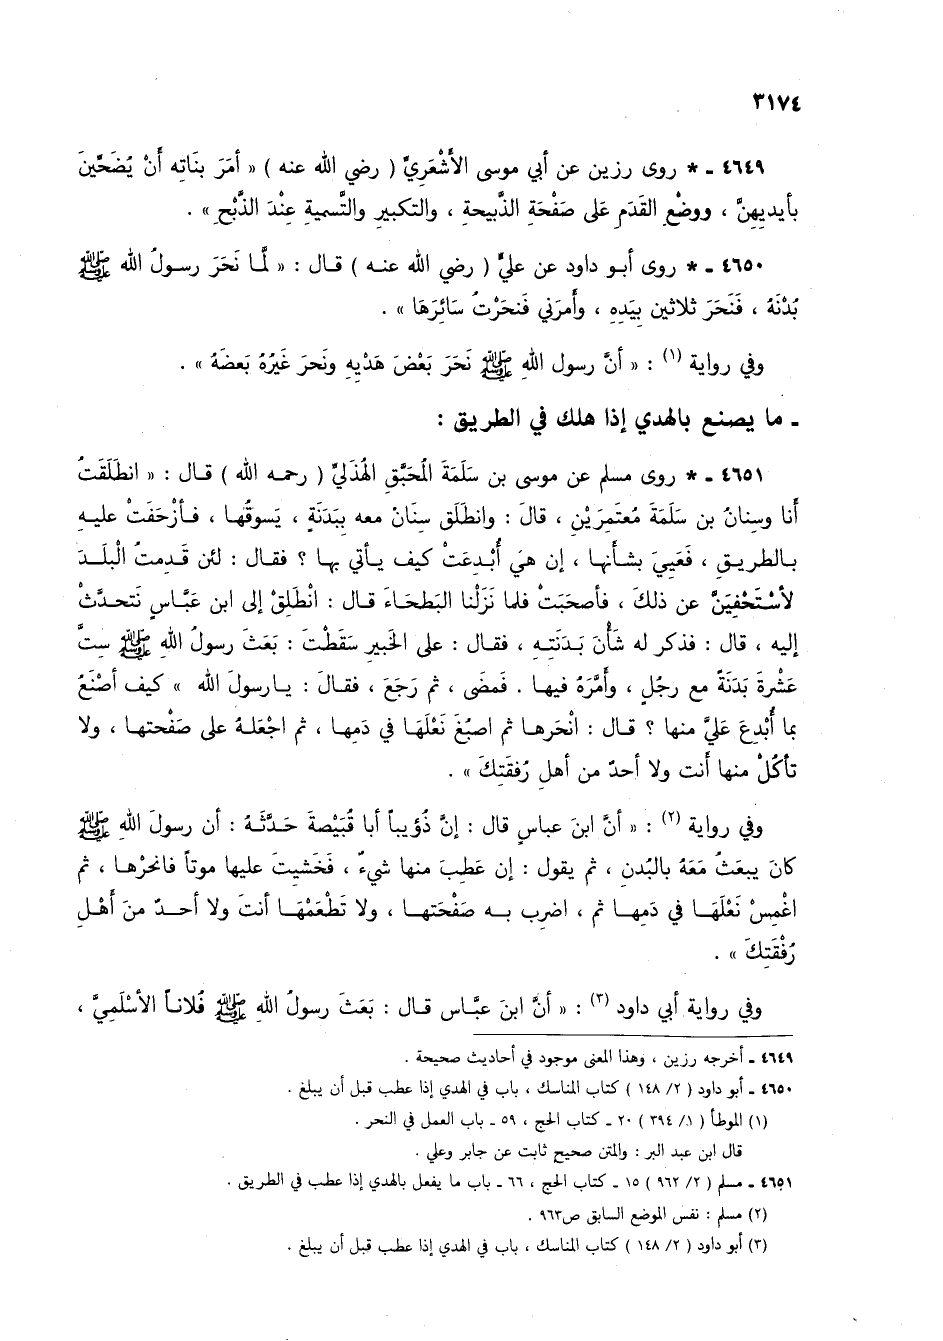 ٣١٧٤
٤٦٤٩ ـ * روى رزين عن أبي موسى الأَشْعَرِيِّ ( رضي الله عنه ) « أمَرَ بنَاتِه أَنْ يُضَحِّينَ
بأيديهِنَّ ، ووضْعِ القَدَم عَلى صَفْحَةِ الذَّبيحةِ ، والتكبيرِ والتَّسميةِ عِنْدَ الذَّبْحِ » .
٤٦٥٠ ـ * روى أبو داود عن عليٍّ ( رضي الله عنه ) قال : « لمَّا نَحَرَ رسولُ الله ﷺ
بُدْنَهُ ، فَنَحَرَ ثلاثين بِيَدِهِ ، وأَمرَني فَنحَرْتُ سَائِرَهَا » .
وفي رواية (١) : « أنَّ رسول اللهِ ﷺ نَحَرَ بَعْضَ هَدْيِهِ ونَحرَ غَيْرُهُ بَعضَهُ » .
ـ ما يصنع بالهدي إذا هلك في الطريق :
٤٦٥١ ـ * روى مسلم عن موسى بن سَلَمَةَ المُحَبَّقِ الهُذَليِّ ( رحمه الله ) قال : « انطَلَقتُ
أنا وسِنانُ بن سَلَمَةَ مُعتَمِرَيْنِ ، قالَ : وانطَلَق سِنَانٌ معه بِبَدَنَةٍ ، يَسوقُها ، فأزْحَفَتْ عليه
بالطريقِ ، فَعَيِيَ بشأنِها ، إن هيَ أُبْدِعَتْ كيف يأتي بها ؟ فقال : لئن قَدِمتُ الْبلَدَ
لأَسْتَحْفِيَنَّ عن ذلكَ ، فأصحَبَتْ فلما نَزَلْنا البَطحَاءَ قال : انْطَلِقْ إلى ابن عَبَّاسٍ نَتحدَّث
إليه ، قال : فذكر له شَأْنَ بَدَنَتِه ، فقال : على الخبيرِ سَقَطْتَ : بَعَثَ رسولُ اللهِ ﷺ سِتَّ
عَشْرةَ بَدَنَةً مع رجُلٍ ، وأَمَّرَهُ فيها . فَمضى ، ثم رَجَعَ ، فقالَ : يارسولَ الله » كيف أصْنَعُ
بما أُبْدِعَ عَليَّ منها ؟ قال : انْحَرها ثم اصبُغْ نَعْلَهَا في دَمِها ، ثم اجْعَلهُ على صَفْحتها ، ولا
تأكُلْ منها أنت ولا أحدٌ من أهلِ رُفقَتِكَ » .
وفي رواية (٢) : « أنَّ ابنَ عباسٍ قال : إنَّ ذُؤيباً أبا قُبَيْصةَ حَدَّثَهُ : أن رسولَ اللهِ ﷺ
كانَ يبعَثُ مَعَهُ بالبُدنِ ، ثم يقول : إن عَطِبَ منها شيءٌ ، فَخَشيتَ عليها موتاً فانحرْها ، ثم
اغْمِسْ نَعْلَهَا في دَمِها ثم ، اضرِب به صَفْحَتها ، ولا تَطْعَمْهَا أنتَ ولا أحدٌ منَ أَهْلِ
رُفْقَتِكَ » .
وفي رواية أبي داود (٣) : « أنَّ ابنَ عبَّاس قال : بَعَثَ رسولُ اللهِ ﷺ فُلاناً الأسْلَمِيَّ ،
٤٦٤٩ ـ أخرجه رزين ، وهذا المعنى موجود في أحاديث صحيحة .
٤٦٥٠ ـ أبو داود ( ٢/ ١٤٨ ) كتاب المناسك ، باب في الهدي إذا عطب قبل أن يبلغ .
(١) الموطأ ( ١/ ٣٩٤ ) ٢٠ ـ كتاب الحج ، ٥٩ ـ باب العمل في النحر .
قال ابن عبد البر : والمتن صحيح ثابت عن جابر وعلي .
٤٦٥١ ـ مسلم ( ٢/ ٩٦٢ ) ١٥ ـ كتاب الحج ، ٦٦ ـ باب ما يفعل بالهدي إذا عطب في الطريق .
(٢) مسلم : نفس الموضع السابق ص٩٦٣ .
(٣) أبو داود ( ٢/ ١٤٨ ) كتاب المناسك ، باب في الهدي إذا عطب قبل أن يبلغ .